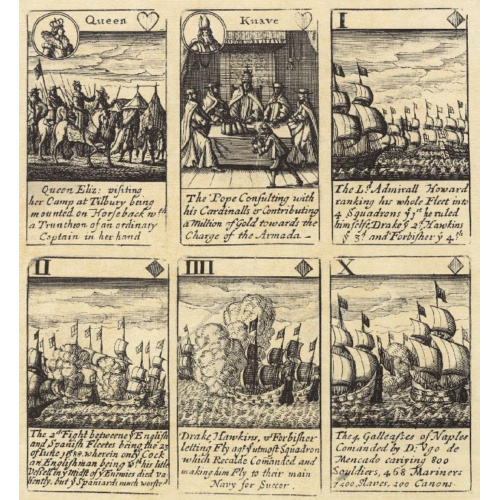 Queen
Queen Eliz: visiting
her Camp at Tilbury being
mounted on Horseback wth
a Truncheon of an ordinary
Captain in her hand
Knave
The Pope Consulting with
his Cardinalls & Contributing
a Million of Gold towards the
Charge of the Armada
I
The Ld. Admirall Howard
ranking his whole Fleet into
4 Squadrons ye 1st he ruled
himselfe, Drake ye 2d. Hawkins
ye 3d. and Forbisher ye 4th.
II
The 2d. Fight betweene ye English
and Spanish Fleetes being the 23
of Iune 1588. wherein only Cock
an Englishman being wth his little
Vessell in ye Midst of ye Enemies died va
liantly, but ye Spaniards much worsted
IIII
Drake, Hawkins, & Forbisher
letting Fly agt ye utmost Squadron
which Recalde Comanded and
making him Fly to their main
Navy for Succor.
X
The 4 Galleasses of Naples
Comanded by D: Vgo de
Moncado cairing 800
Souldiers, 468 Mariners
1200 Slaves, 200 Canons